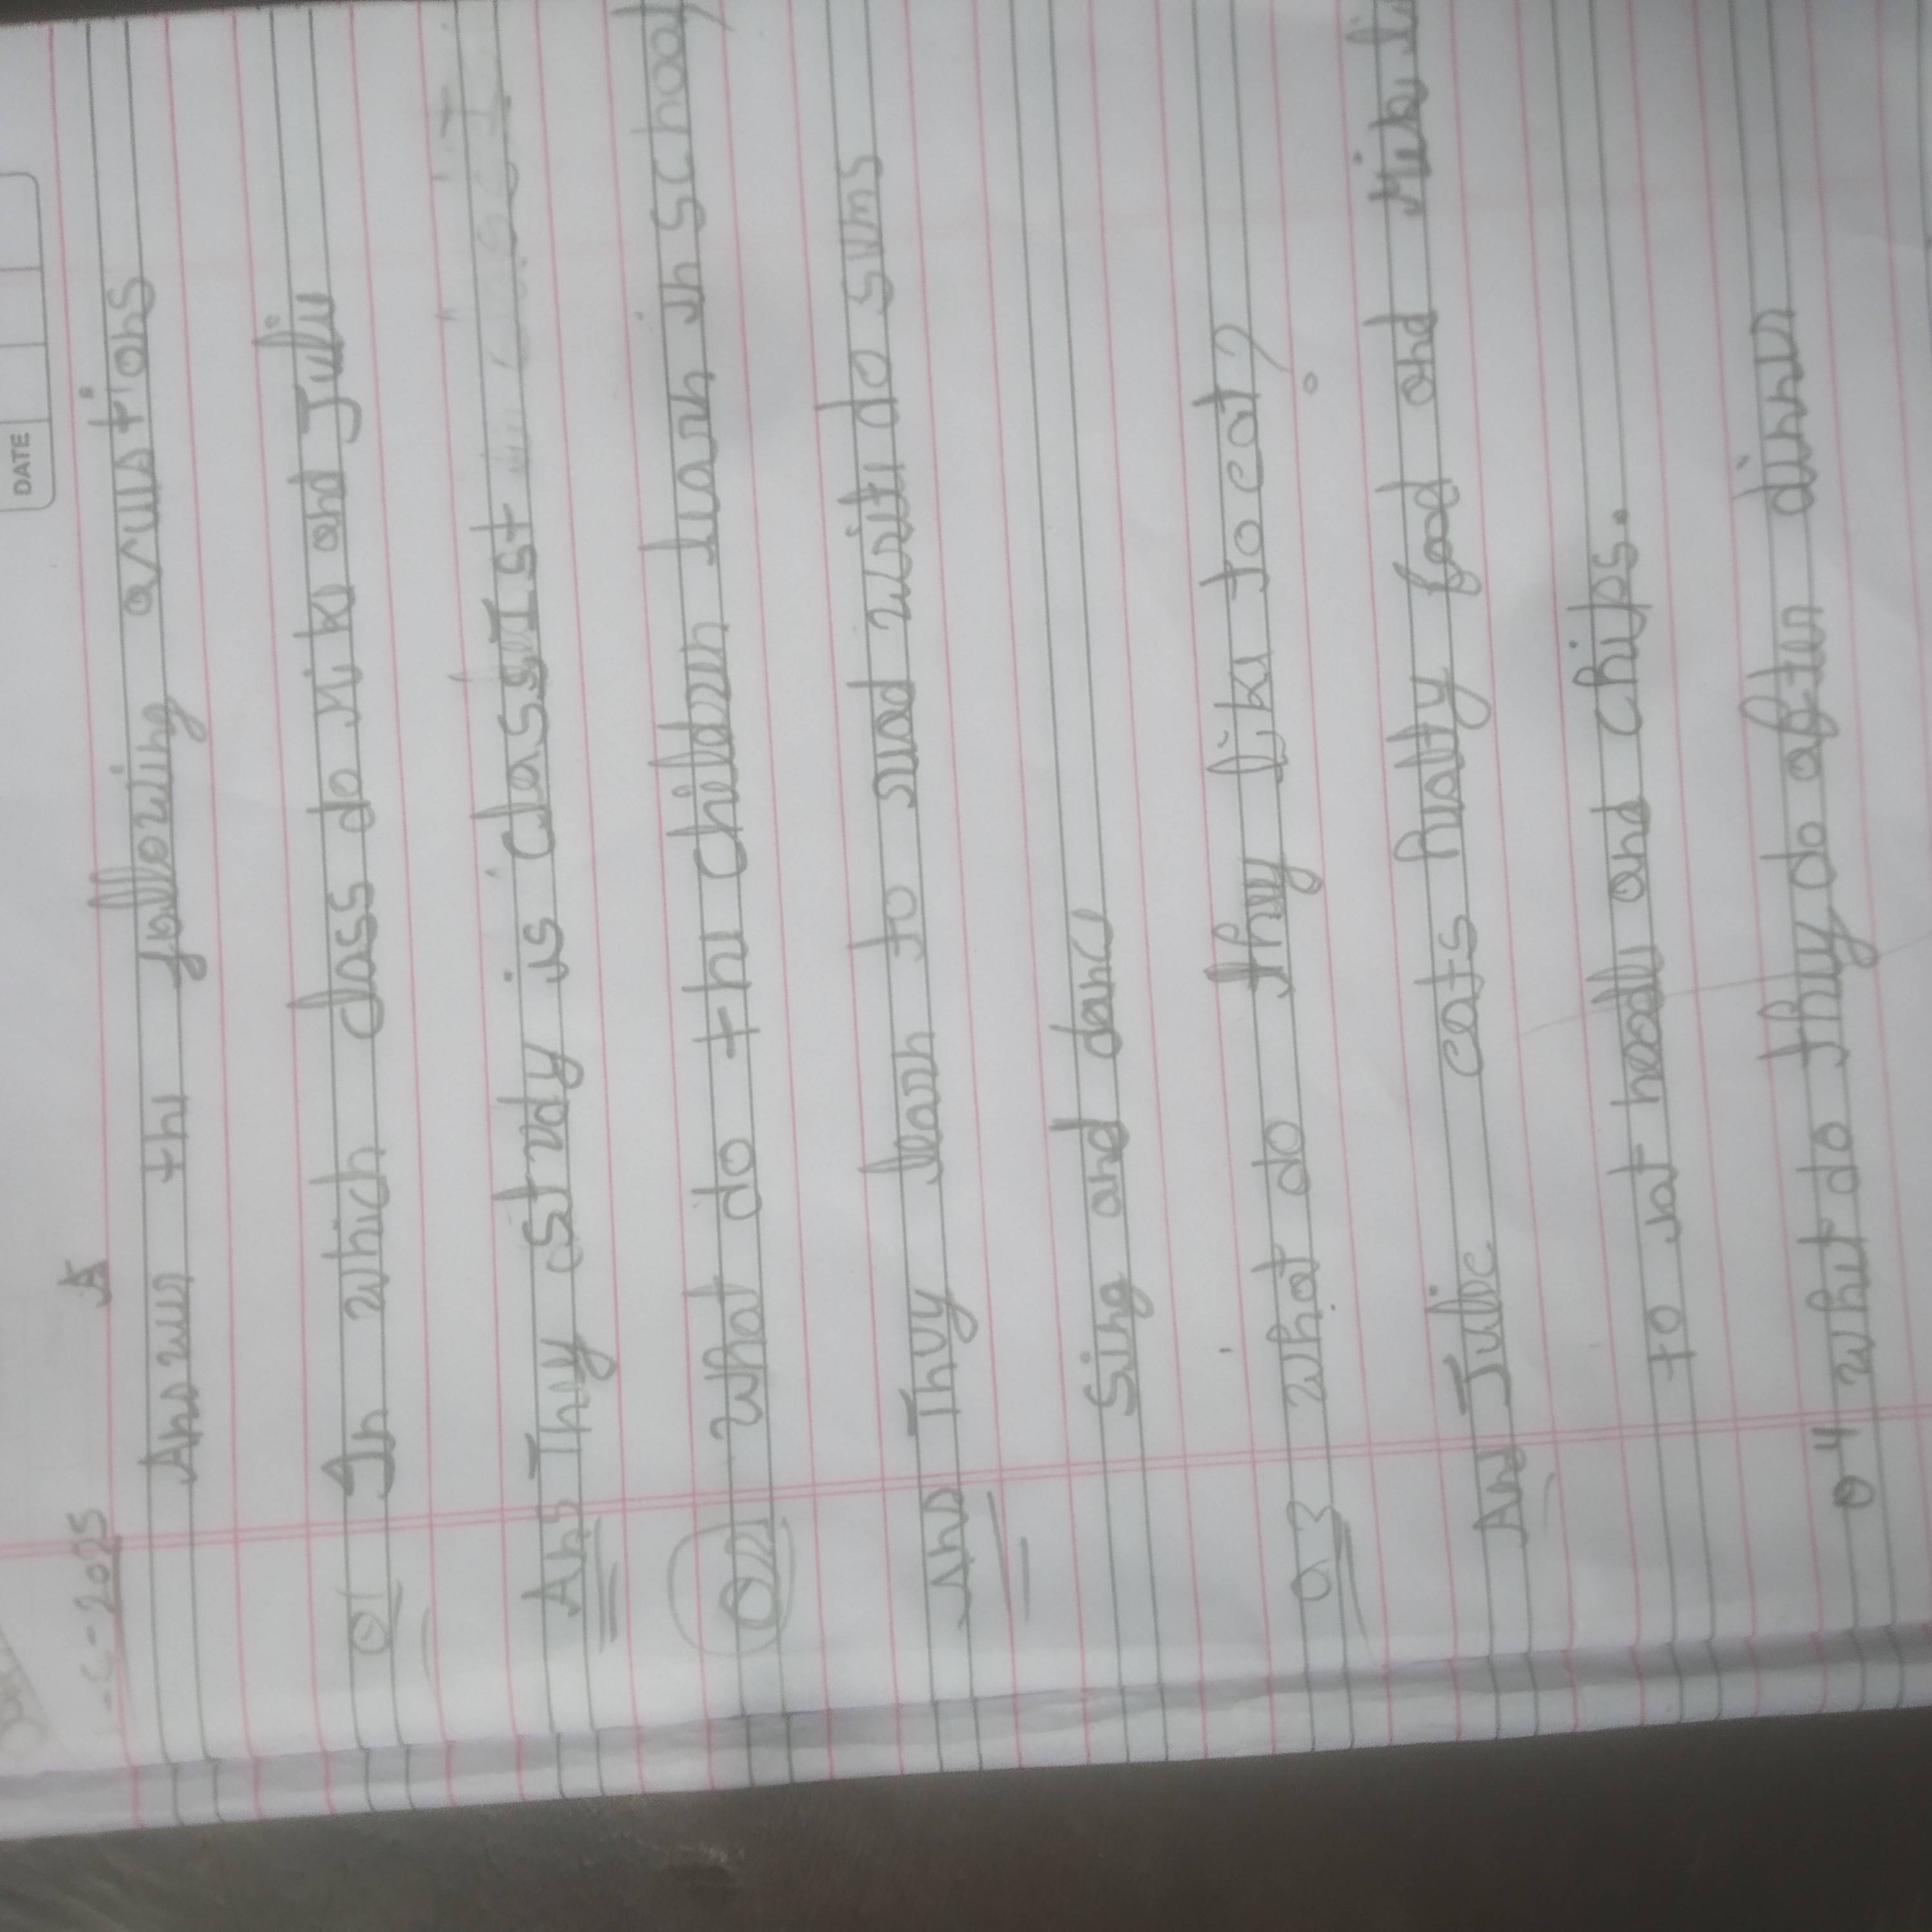 DATE
-6-2025
Answer the following questions
Q1 In which class do Miki and Julie
Ans They study is class 1st
Q2 What do the children learn in school
Ans They learn to read write do sums
Sing and dance
Q.3 what do they like to eat?
Ans Julie eats healty food and Miki li
to eat noodle and chips.
Q4 what do they do after dinner